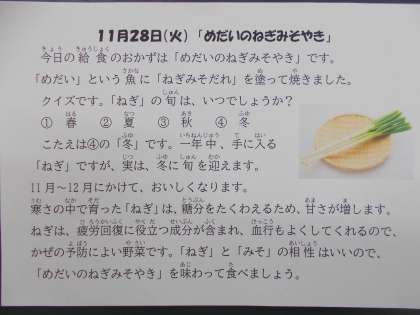 11月28日(火)「めだいのねぎみそやき」
今日の給食のおかずは「めだいのねぎみそやき」です。
「めだい」という魚に「ねぎみそだれ」を塗って焼きました。
クイズです。「ねぎ」の旬は、いつでしょうか?
① 春 ② 夏 ③ 秋 ④ 冬
こたえは④の「冬」です。一年中、手に入る
「ねぎ」ですが、実は、冬に旬を迎えます。
11月~12月にかけて、おいしくなります。
寒さの中で育った「ねぎ」は、糖分をたくわえるため、甘さが増します。
ねぎは、疲労回復に役立つ成分が含まれ、血行もよくしてくれるので、
かぜの予防によい野菜です。「ねぎ」と「みそ」の相性はいいので、
「めだいのねぎみそやき」を味わって食べましょう。